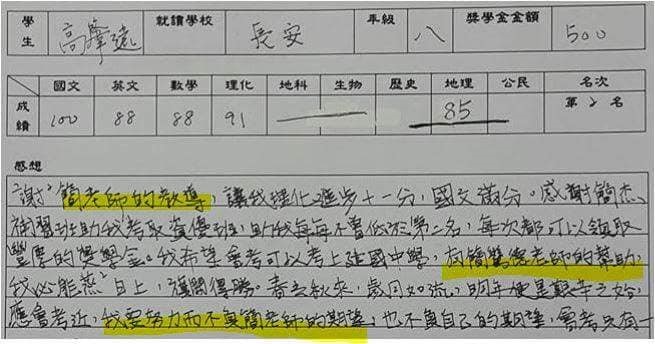 學生 高肇遠 就讀學校 長安 年級 八 獎學金金額 500
國文 英文 數學 理化 地科 生物 歷史 地理 公民 名次
成績 100 88 88 91 85 第2名
感想
謝謝簡老師的教導,讓我理化進步十一分,國文滿分。感謝簡杰
補習班助我考取資優班,助我每每不曾低於第二名,每次都可以領取
豐厚的獎學金。我希望會考可以考上建國中學,有簡老師的幫助
我必能蒸蒸日上,旗開得勝。春去秋來,歲月如流,明年便是艱辛之始,
應會考近,我要努力而不負簡老師的期望,也不負自己的期望,會考只有一